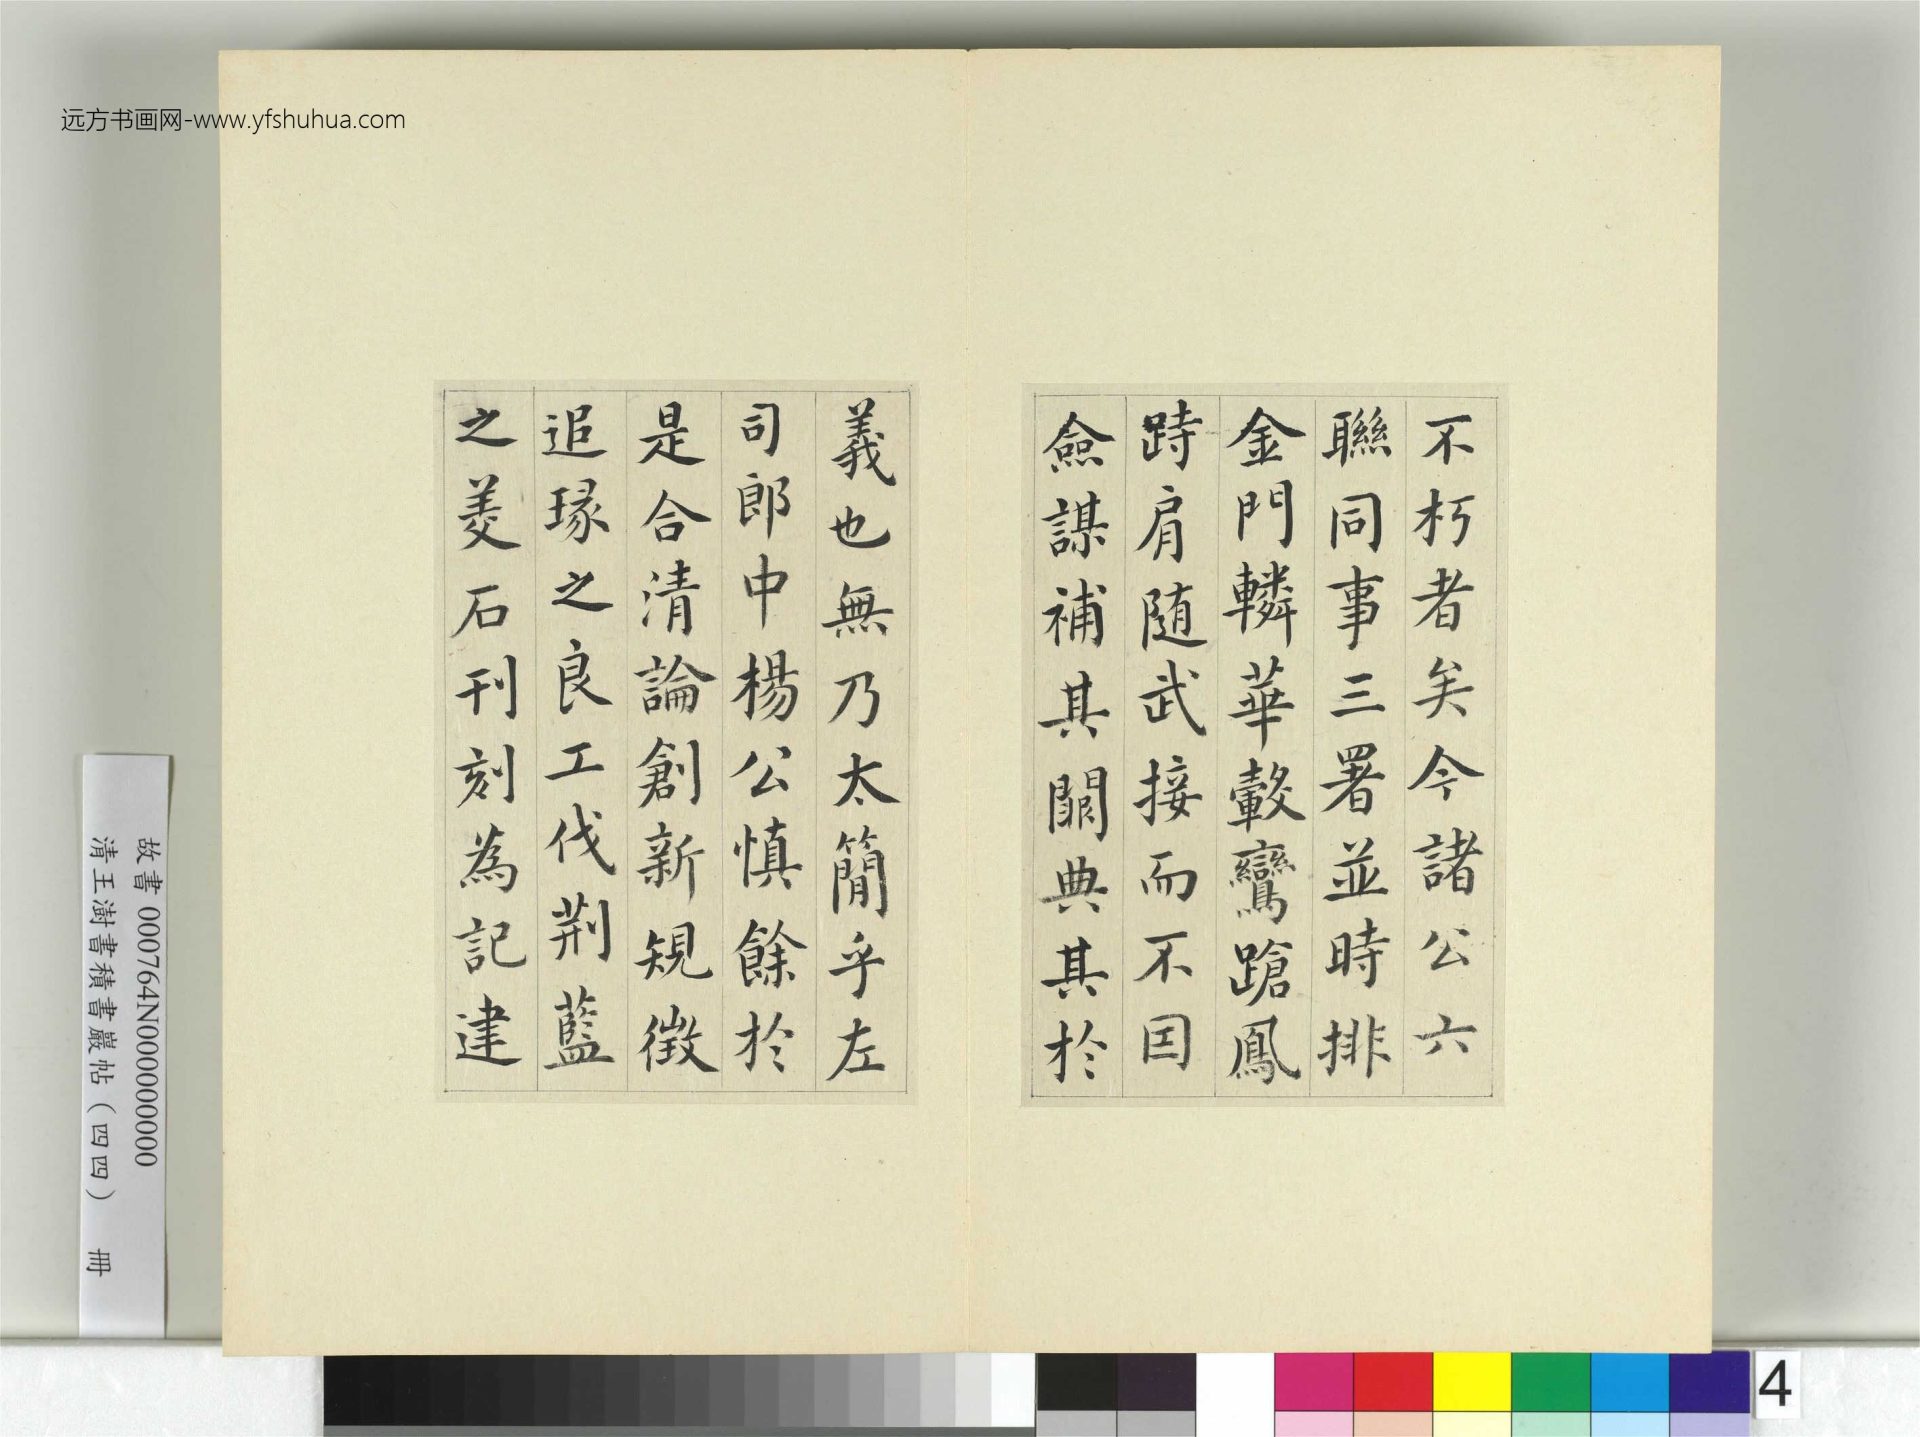 远方书画网-www.yfshuhua.com
不朽者矣今諸公六
聯同事三署並時排
金門轔華轂鸞蹌鳳
跱肩随武接而不囙
僉謀補其闕典其於
義也無乃太簡乎左
司郎中楊公慎餘於
是合清論創新規徵
追琢之良工伐荆藍
之美石刊刻為記建
故書 000764N000000000
清王澍書積書巖帖（四四） 冊
4